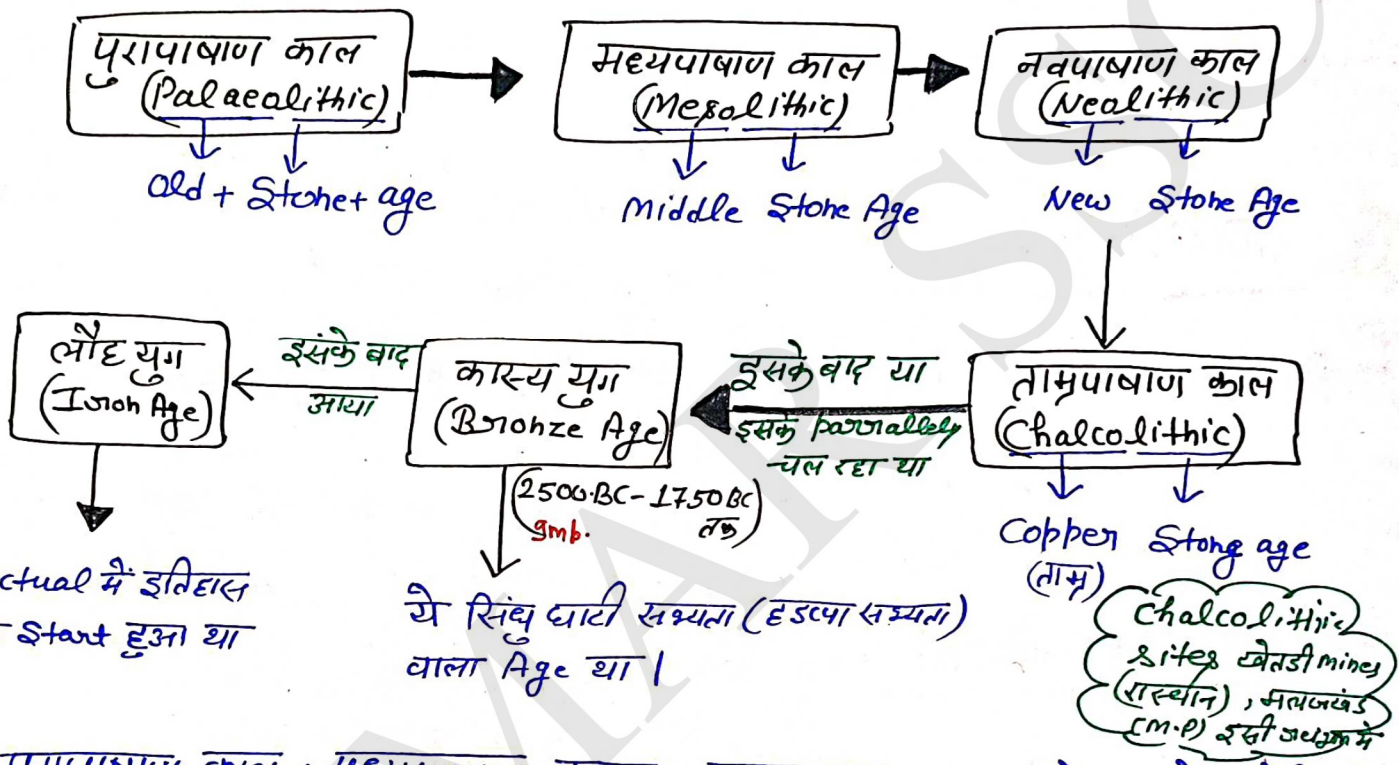 पुरापाषाण काल
(Palaeolithic)
Old + Stone + age
मध्यपाषाण काल
(Mesolithic)
Middle Stone Age
नवपाषाण काल
(Nealithic)
New Stone Age
ताम्रपाषाण काल
(Chalcolithic)
Copper Stong age
(ताम्र)
Chalcolithic
sites खेतडी mines
(रास्थान), मलाजखंड
(M.P) इसी
इसके बाद या
इसके parrallely
चल रहा था
कास्य युग
(Bronze Age)
(2500.BC - 1750 BC
Imp. तक)
ये सिंधु घाटी सभ्यता (हडप्पा सभ्यता)
वाला Age था |
इसके बाद
आया
लौह युग
(Iron Age)
ctual में इतिहास
Start हुआ था
MAR SSC